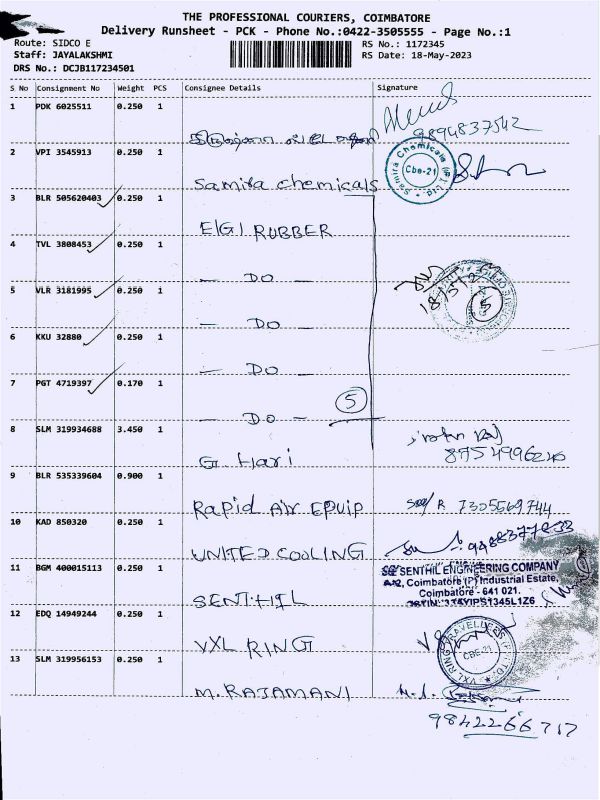 THE PROFESSIONAL COURIERS, COIMBATORE
Delivery Runsheet - PCK - Phone No.:0422-3505555 - Page No.:1
Route: SIDCO E
RS No.: 1172345
Staff: JAYALAKSHMI
RS Date: 18-May-2023
DRS No.: DCJB117234501
S No Consignment No Weight PCS Consignee Details Signature
1 PDK 6025511 0.250 1
9894837542
2 VPI 3545913 0.250 1
Samira Chemicals
Samira Chemicals (P) Cbe-21
3 BLR 505620403 0.250 1
ElGI RUBBER
4 TVL 3808453 0.250 1
— DO —
18/5/2
5 VLR 3181995 0.250 1
— DO —
5
6 KKU 32880 0.250 1
— DO —
7 PGT 4719397 0.170 1
— DO —
5
8 SLM 319934688 3.450 1
G. Hari
9 BLR 535339604 0.900 1
Rapid Air Equip
7305569744
10 KAD 850320 0.250 1
UNITED COOLING
11 BGM 400015113 0.250 1
SENTHIL
SENTHIL ENGINEERING COMPANY
A-2, Coimbatore (P) Industrial Estate,
Coimbatore - 641 021.
12 EDQ 14949244 0.250 1
VXL RING
VXL RING TRAVELLERS CBE-21
13 SLM 319956153 0.250 1
M. RAJAMANI
9842266717